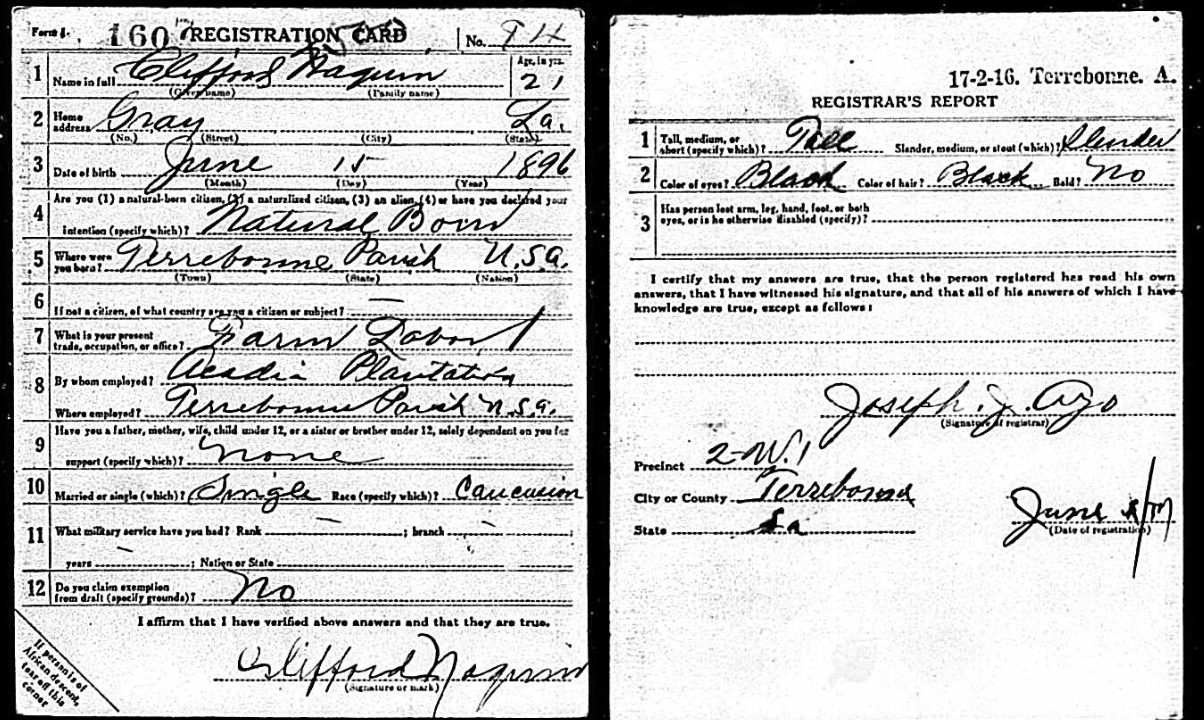 Form 1 160 REGISTRATION CARD No. 74
1 Name in full Clifford Naquin Age, in yrs. 21
(Given name) (Family name)
2 Home address Gray La.
(No.) (Street) (City) (State)
3 Date of birth June 15 1896
(Month) (Day) (Year)
4 Are you (1) a natural-born citizen, (2) a naturalized citizen, (3) an alien, (4) or have you declared your
intention (specify which)? Natural Born
5 Where were you born? Terrebonne Parish U.S.A.
(Town) (State) (Nation)
6 If not a citizen, of what country are you a citizen or subject? —
7 What is your present trade, occupation, or office? Farm Labor
8 By whom employed? Acadia Plantation
Where employed? Terrebonne Parish U.S.A.
9 Have you a father, mother, wife, child under 12, or a sister or brother under 12, solely dependent on you for
support (specify which)? None
10 Married or single (which)? Single Race (specify which)? Caucasion
11 What military service have you had? Rank — ; branch — ;
years — ; Nation or State
12 Do you claim exemption from draft (specify grounds)? No
I affirm that I have verified above answers and that they are true.
Clifford Naquin
(Signature or mark)
If person is of
African descent,
tear off this
corner
17-2-16. Terrebonne. A.
REGISTRAR'S REPORT
1 Tall, medium, or short (specify which)? Tall Slender, medium, or stout (which)? Slender
2 Color of eyes? Black Color of hair? Black Bald? No
3 Has person lost arm, leg, hand, foot, or both
eyes, or is he otherwise disabled (specify)?
I certify that my answers are true, that the person registered has read his own
answers, that I have witnessed his signature, and that all of his answers of which I have
knowledge are true, except as follows:
Joseph. J. Ayo
(Signature of registrar)
Precinct 2-W.1
City or County Terrebonne
State La
June
(Date of registration)